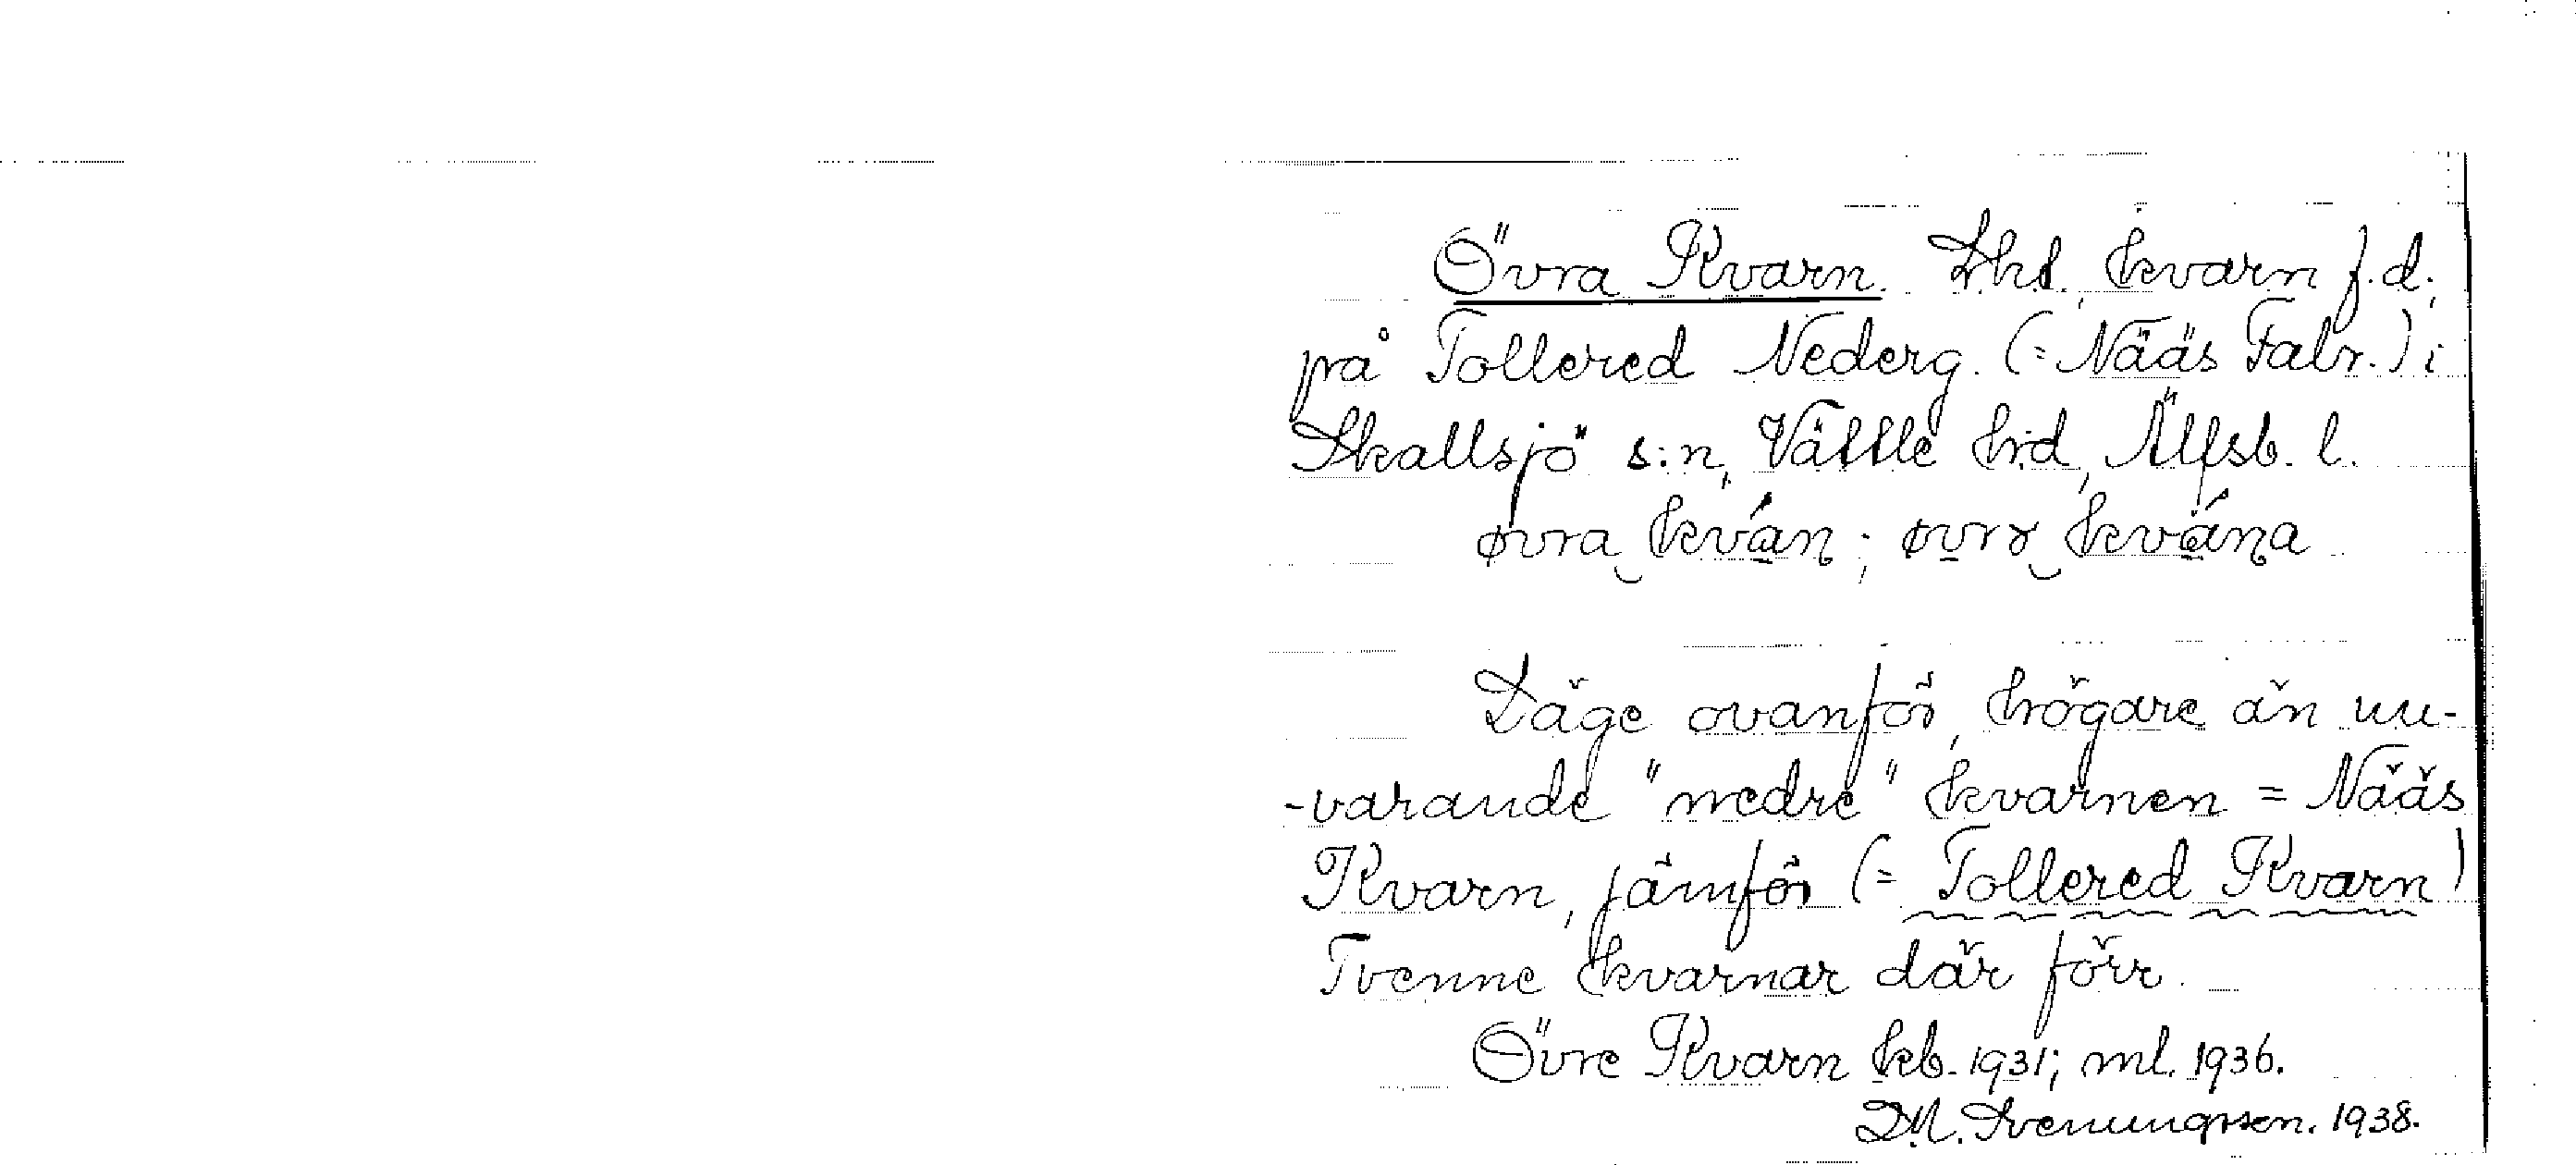 Övra Kvarn. Lht., kvarn f.d.,
på Tollered Nederg. (= Nääs Fabr.) i
Skallsjö s:n, Vättle h:d, Älfsb. l.
øvra kván; øvrɤ kvána
Läge ovanför, högare än nu-
-varande "nedre" kvarnen = Nääs
Kvarn, jämför (= Tollered Kvarn)
Tvenne kvarnar där förr.
Övre Kvarn kb. 1931; ml. 1936.
D.M. Svenungsson. 1938.